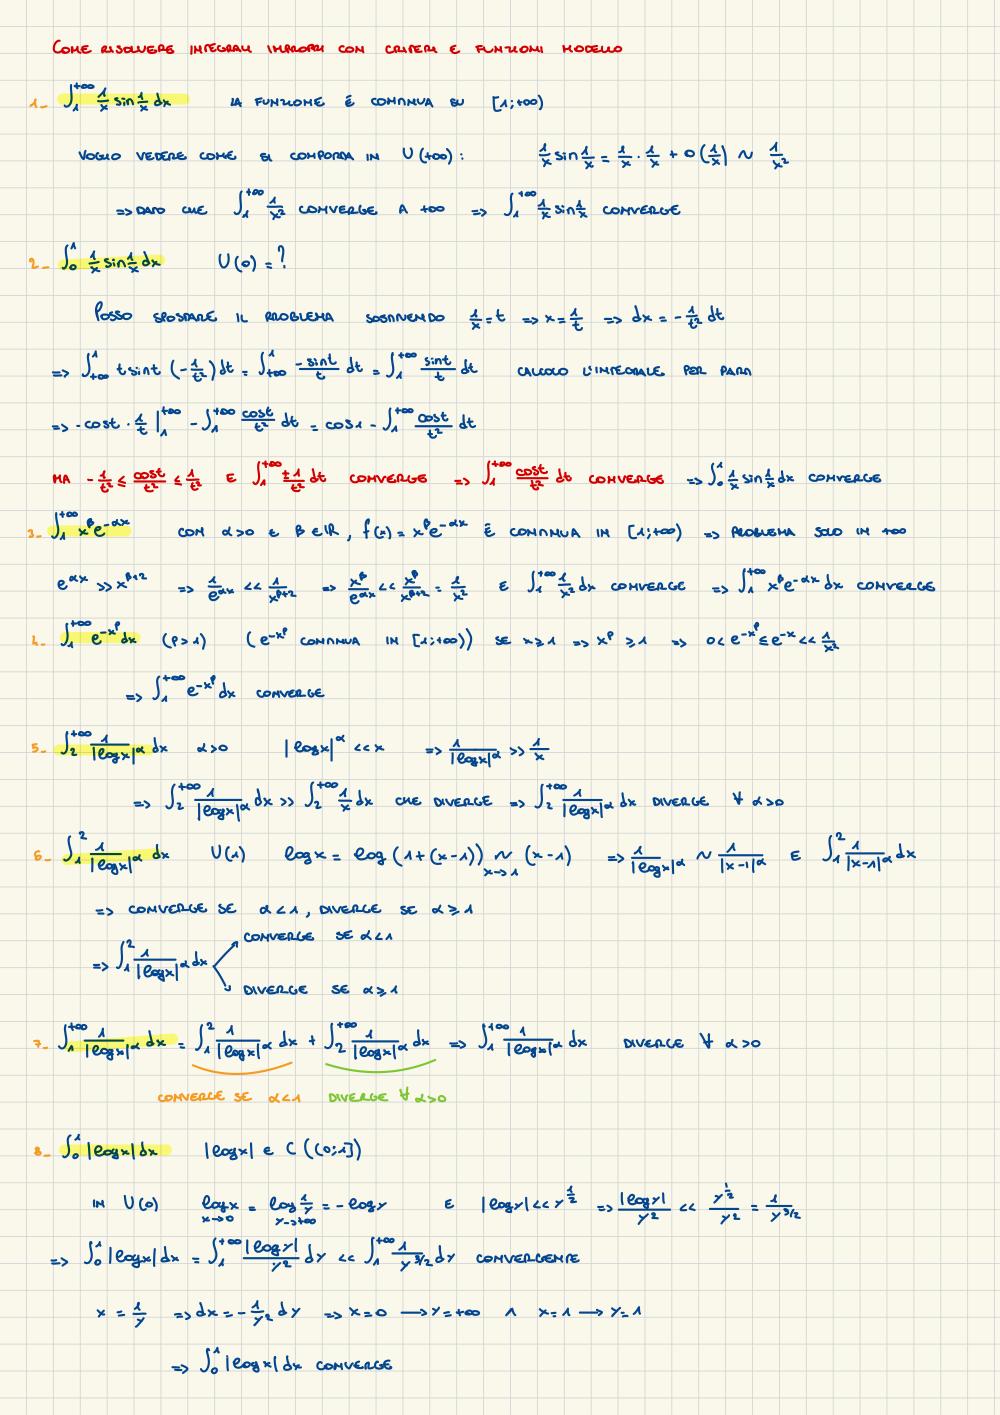 COME RISOLVERE INTEGRALI IMPROPRI CON CRITERI E FUNZIONI MODELLO
1_ ∫₁^{+∞} 1/x sin 1/x dx LA FUNZIONE È CONTINUA SU [1;+∞)
VOGLIO VEDERE COME SI COMPORTA IN U(+∞): 1/x sin 1/x = 1/x · 1/x + o(1/x) ~ 1/x²
=> DATO CHE ∫₁^{+∞} 1/x² CONVERGE A +∞ => ∫₁^{+∞} 1/x sin 1/x CONVERGE
2_ ∫₀^1 1/x sin 1/x dx U(0) = ?
POSSO SPOSTARE IL PROBLEMA SOSTITUENDO 1/x = t => x = 1/t => dx = -1/t² dt
=> ∫_{+∞}^1 t sin t (-1/t²) dt = ∫_{+∞}^1 -sin t/t dt = ∫₁^{+∞} sin t/t dt CALCOLO L'INTEGRALE PER PARTI
=> -cos t · 1/t |₁^{+∞} - ∫₁^{+∞} cos t/t² dt = cos 1 - ∫₁^{+∞} cos t/t² dt
MA -1/t² ≤ cos t/t² ≤ 1/t² E ∫₁^{+∞} ±1/t² dt CONVERGE => ∫₁^{+∞} cos t/t² dt CONVERGE => ∫₀^1 1/x sin 1/x dx CONVERGE
3_ ∫₁^{+∞} x^β e^{-αx} CON α>0 E β∈ℝ, f(x) = x^β e^{-αx} È CONTINUA IN [1;+∞) => PROBLEMA SOLO IN +∞
e^{αx} >> x^{β+2} => 1/e^{αx} << 1/x^{β+2} => x^β/e^{αx} << x^β/x^{β+2} = 1/x² E ∫₁^{+∞} 1/x² dx CONVERGE => ∫₁^{+∞} x^β e^{-αx} dx CONVERGE
4_ ∫₁^{+∞} e^{-x^p} dx (p>1) (e^{-x^p} CONTINUA IN [1;+∞)) SE x≥1 => x^p ≥1 => 0< e^{-x^p} ≤ e^{-x} << 1/x²
=> ∫₁^{+∞} e^{-x^p} dx CONVERGE
5_ ∫₂^{+∞} 1/|log x|^α dx α>0 |log x|^α << x => 1/|log x|^α >> 1/x
=> ∫₂^{+∞} 1/|log x|^α dx >> ∫₂^{+∞} 1/x dx CHE DIVERGE => ∫₂^{+∞} 1/|log x|^α dx DIVERGE ∀ α>0
6_ ∫₁^2 1/|log x|^α dx U(1) log x = log (1+(x-1)) ~_{x->1} (x-1) => 1/|log x|^α ~ 1/|x-1|^α E ∫₁^2 1/|x-1|^α dx
=> CONVERGE SE α<1, DIVERGE SE α≥1
CONVERGE SE α<1
=> ∫₁^2 1/|log x|^α dx
DIVERGE SE α≥1
7_ ∫₁^{+∞} 1/|log x|^α dx = ∫₁^2 1/|log x|^α dx + ∫₂^{+∞} 1/|log x|^α dx => ∫₁^{+∞} 1/|log x|^α dx DIVERGE ∀ α>0
CONVERGE SE α<1 DIVERGE ∀ α>0
8_ ∫₀^1 |log x| dx |log x| ∈ C((0;1])
IN U(0) log x_{x->0} = log 1/y_{y->+∞} = -log y E |log y| << y^{1/2} => |log y|/y² << y^{1/2}/y² = 1/y^{3/2}
=> ∫₀^1 |log x| dx = ∫₁^{+∞} |log y|/y² dy << ∫₁^{+∞} 1/y^{3/2} dy CONVERGENTE
x = 1/y => dx = -1/y² dy => x=0 —> y=+∞ ∧ x=1 —> y=1
=> ∫₀^1 |log x| dx CONVERGE